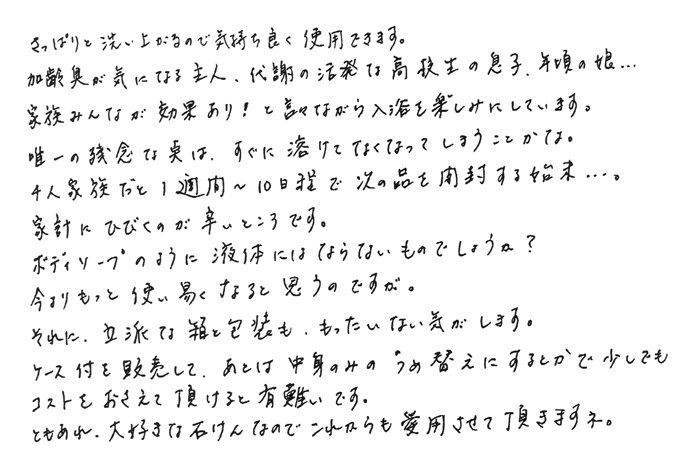 さっぱりと洗い上がるので気持ち良く使用できます。
加齢臭が気になる主人、代謝の活発な高校生の息子、年頃の娘…
家族みんなが効果あり！と言いながら入浴を楽しみにしています。
唯一の残念な点は、すぐに溶けてなくなってしまうことかな。
4人家族だと1週間～10日程で次の品を開封する始末…。
家計にひびくのが辛いところです。
ボディソープのように液体にはならないものでしょうか？
今よりもっと使い易くなると思うのですが。
それに、立派な箱と包装も、もったいない気がします。
ケース付を販売して、あとは中身のみのうめ替えにするとかで少しでも
コストをおさえて頂けると有難いです。
ともあれ、大好きな石けんなのでこれからも愛用させて頂きますネ。